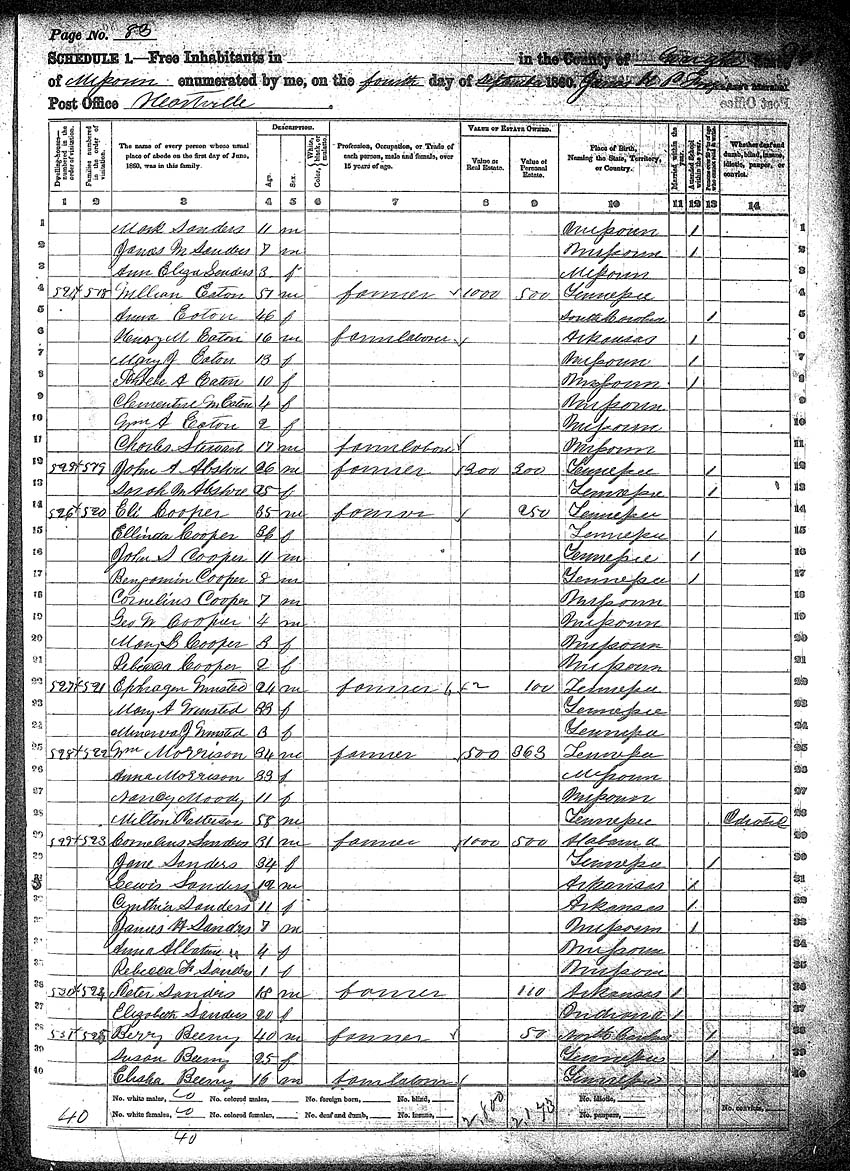 Page No. 83
SCHEDULE 1.—Free Inhabitants in in the County of
of Missouri enumerated by me, on the fourth day of September 1860.
Post Office
Dwelling-houses—numbered in the order of visitation.
Families numbered in the order of visitation.
The name of every person whose usual place of abode on the first day of June, 1860, was in this family.
DESCRIPTION.
Age.
Sex.
Color, White, black, or mulatto.
Profession, Occupation, or Trade of each person, male and female, over 15 years of age.
VALUE OF ESTATE OWNED.
Value of Real Estate.
Value of Personal Estate.
Place of Birth, Naming the State, Territory, or Country.
Married within the year.
Whether deaf and dumb, blind, insane, idiotic, pauper, or convict.
1 2 3 4 5 6 7 8 9 10 11 12 13 14
1 Mark Sanders 11 m Missouri 1 1
2 James M Sanders 7 m Missouri 1 2
3 Ann Eliza Sanders 3 f Missouri 3
4 578 William Eaton 51 m farmer 1000 500 Tennessee 4
5 Anna Eaton 46 f South Carolina 1 5
6 Henry M Eaton 16 m farmlaborer Arkansas 1 6
7 Mary J Eaton 13 f Missouri 1 7
8 Phebe A Eaton 10 f Missouri 1 8
9 Clementine M Eaton 4 f Missouri 9
10 Wm A Eaton 2 f Missouri 10
11 Charles Stewart 17 m farmlabor Missouri 11
12 579 John A 26 m farmer 300 Tennessee 1 12
13 Sarah M 25 f Tennessee 1 13
14 526 520 Eli Cooper 35 m farmer 250 Tennessee 14
15 Ellinda Cooper 36 f Tennessee 1 15
16 John S Cooper 11 m Tennessee 1 16
17 Benjamin Cooper 8 m Tennessee 1 17
18 Cornelius Cooper 7 m Missouri 18
19 Geo W Cooper 4 m Missouri 19
20 Mary E Cooper 3 f Missouri 20
21 Rebecca Cooper 2 f Missouri 21
22 527 521 24 m farmer 100 Tennessee 22
23 Mary A 33 f Tennessee 23
24 Minerva J 3 f Tennessee 24
25 528 522 Wm Morrison 34 m farmer 500 363 Tennessee 25
26 Anna Morrison 33 f Missouri 26
27 Nancy Moody 11 f Missouri 27
28 Milton Patterson 58 m Tennessee 28
29 529 523 Cornelius Sanders 31 m farmer 1000 500 Alabama 29
30 Jane Sanders 34 f Tennessee 1 30
31 Lewis Sanders 12 m Arkansas 1 31
32 Cynthia Sanders 11 f Arkansas 1 32
33 James H Sanders 7 m Missouri 1 33
34 Anna 4 f Missouri 34
35 Rebecca F Sanders 1 f Missouri 35
36 530 524 Peter Sanders 18 m farmer 110 Arkansas 1 36
37 Elizabeth Sanders 20 f Indiana 1 37
38 531 525 Berry Beemy 40 m farmer 50 North Carolina 1 38
39 Susan Beemy 25 f Tennessee 1 39
40 Elisha Beemy 16 m farmlaborer Tennessee 40
No. white males, 20 No. colored males, No. foreign born, No. blind, No. idiotic,
40 No. white females, 20 No. colored females, No. deaf and dumb, No. insane, No. paupers, No. convicts,
40